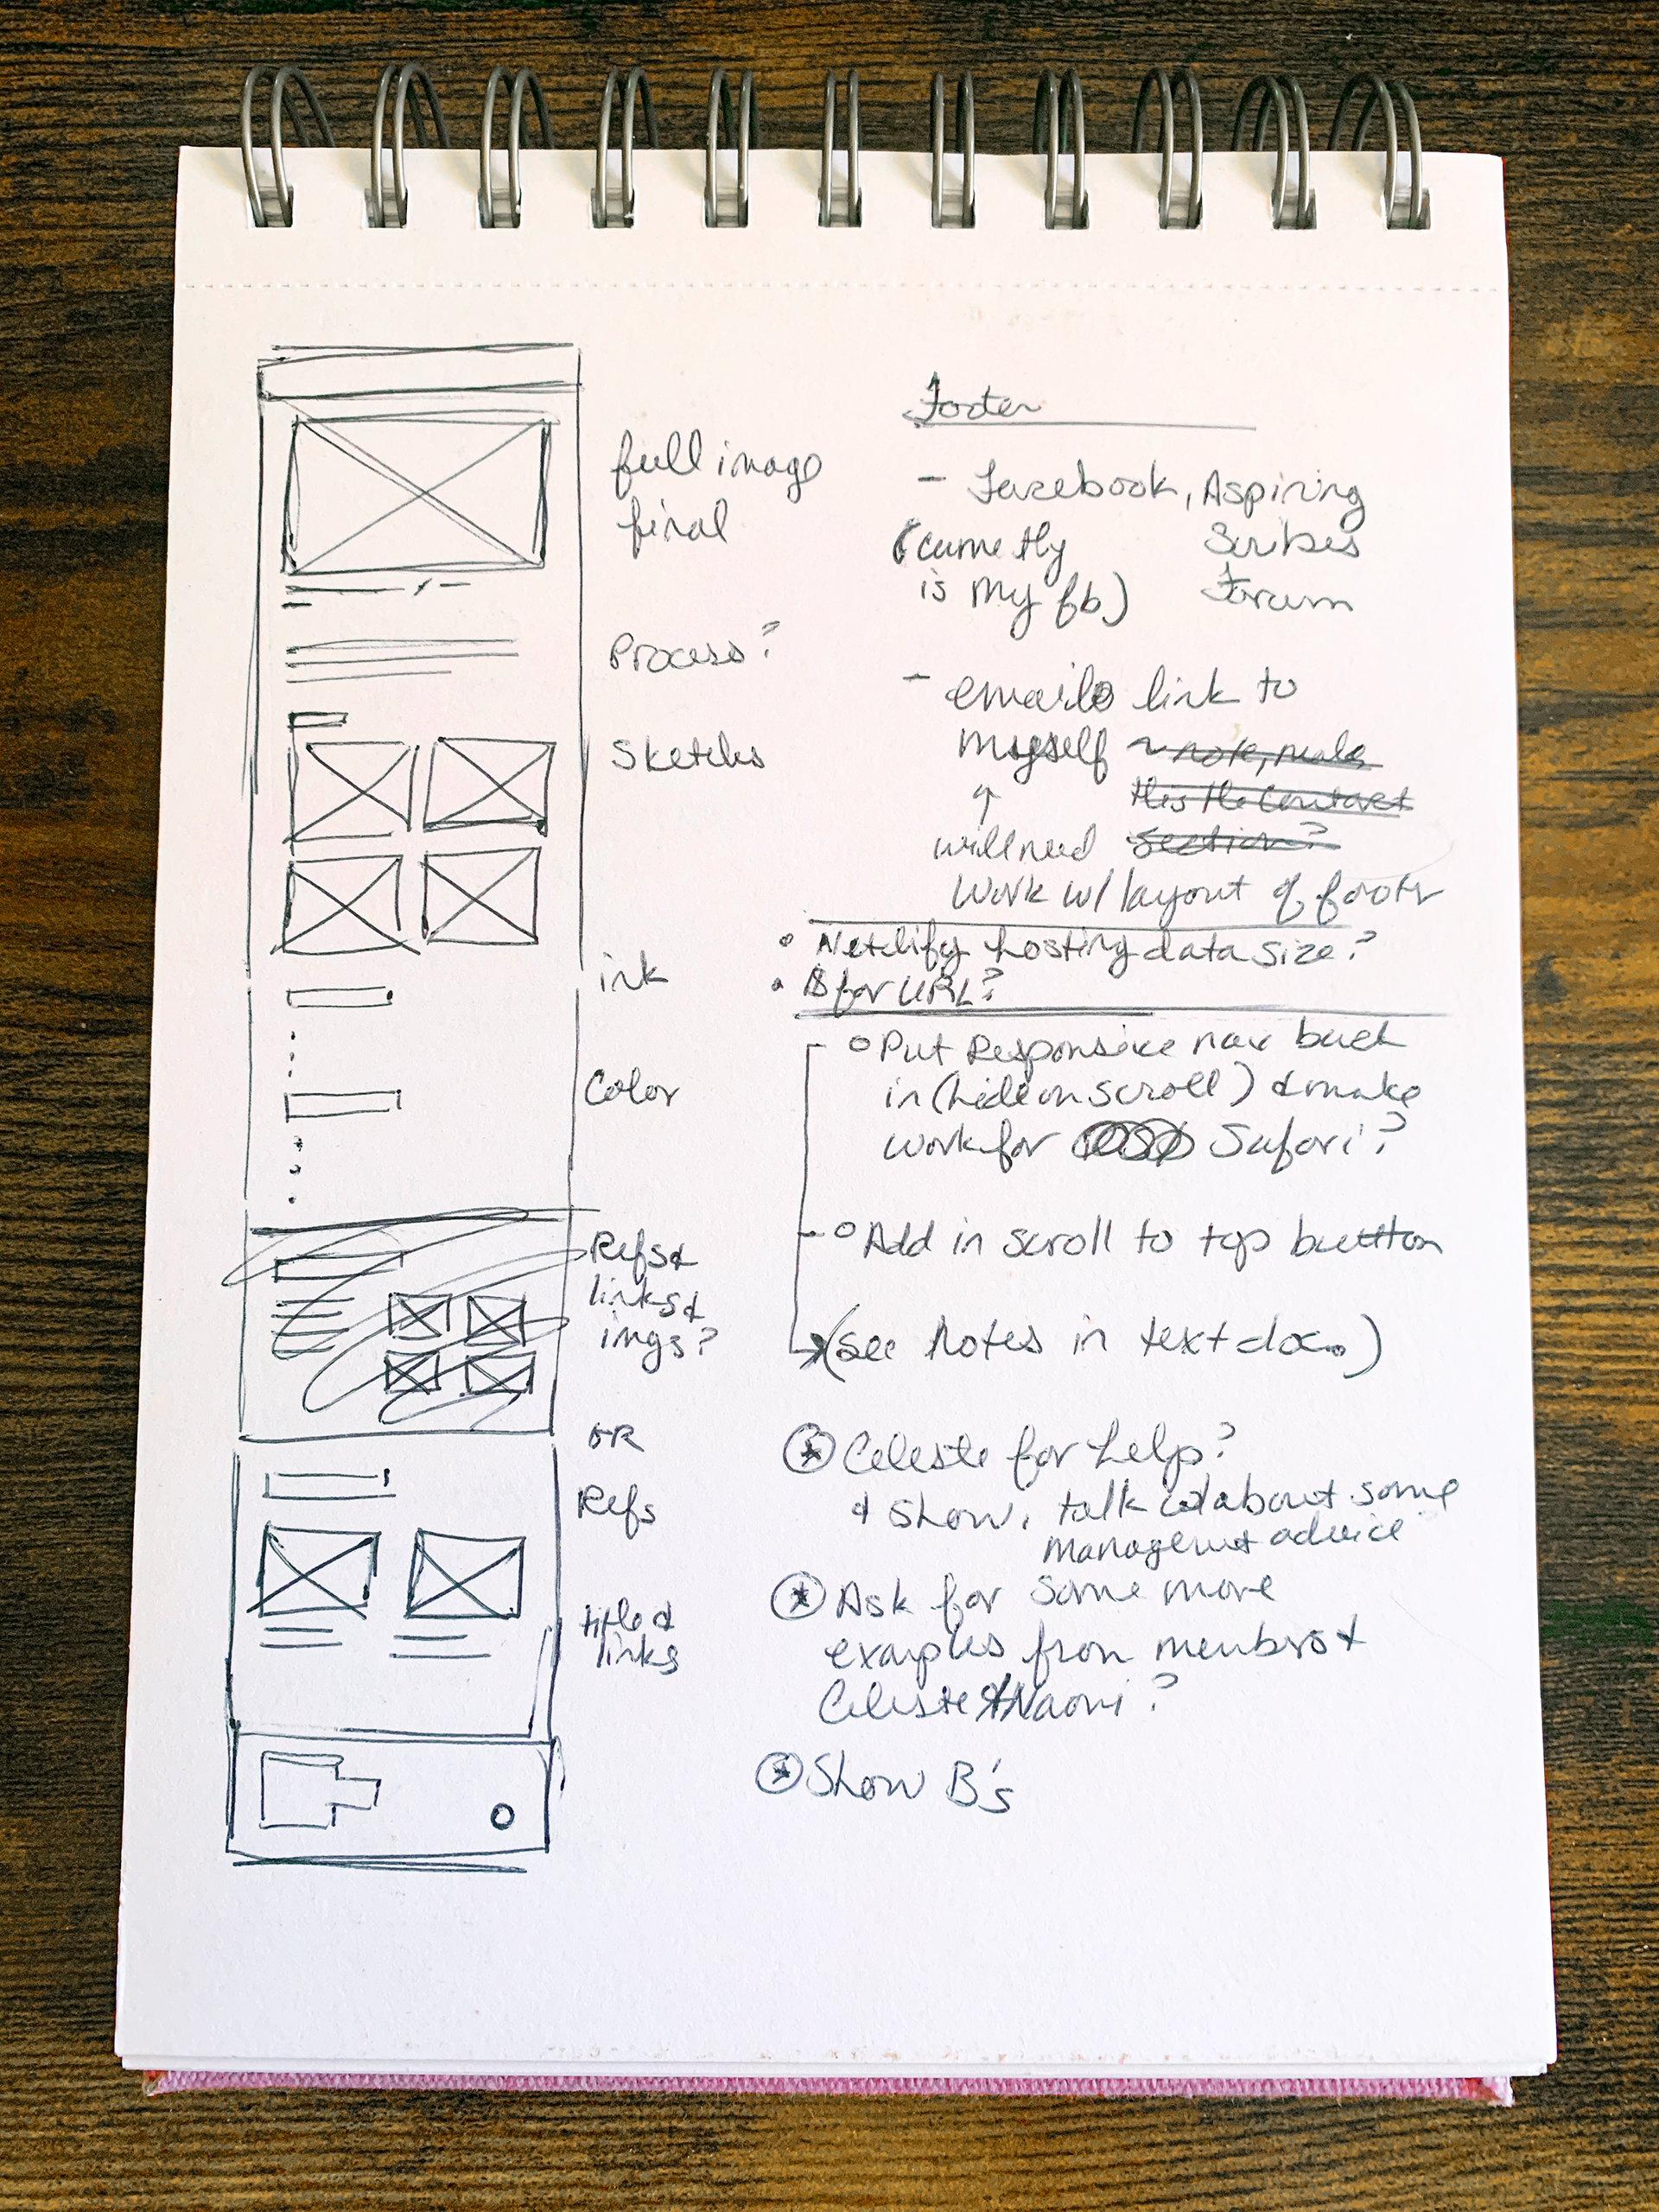 full image
final
Process?
Sketches
ink
Color
Refs &
links &
imgs?
OR
Refs
title &
links
Footer
- Facebook, Aspiring
(currently Scribes
is my fb) Forum
- email link to
myself ~ note, make
↑ this the contact
will need section?
work w/ layout of footer
• Netlify hosting data size?
• $ for URL?
○ Put Responsive nav back
in (hide on scroll) & make
work for Safari?
○ Add in scroll to top button
(see notes in text doc.)
★ Celeste for help?
& show, talk about some
management advice
★ Ask for some more
examples from members &
Celeste & Naomi?
★ Show B's